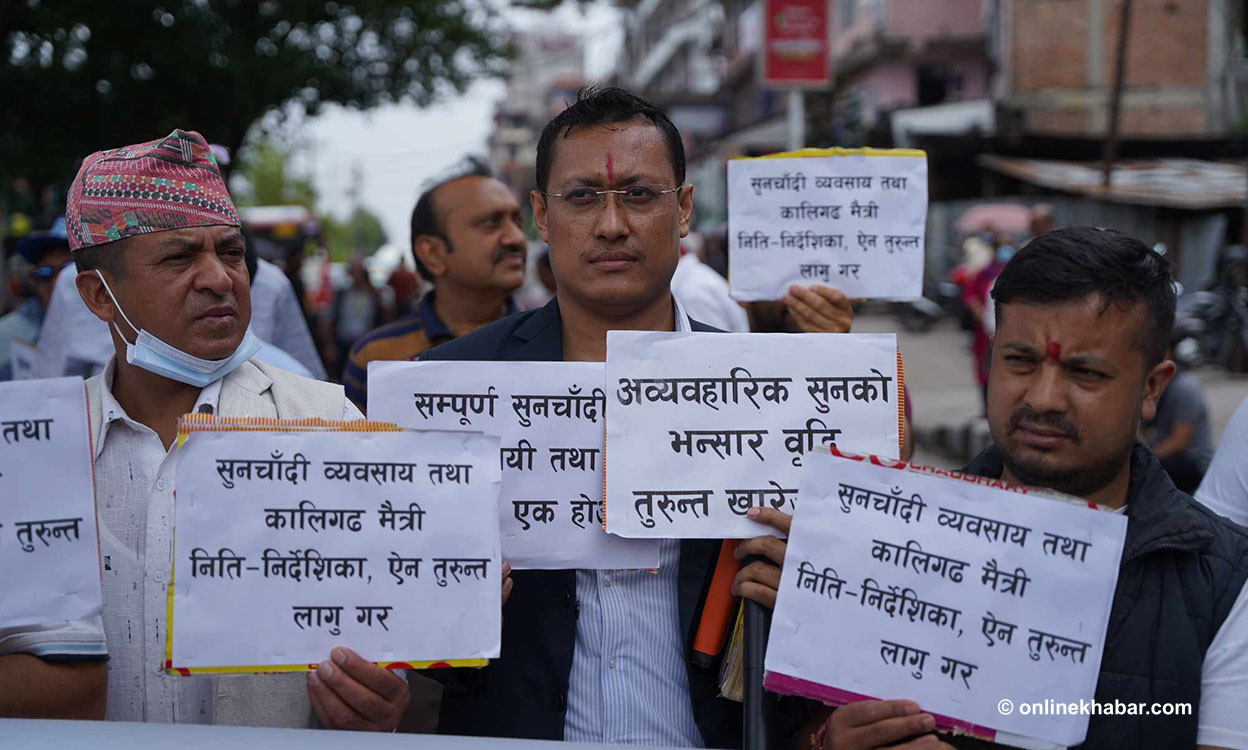 सुनचाँदी व्यवसाय तथा
कालिगढ मैत्री
निति-निर्देशिका, ऐन तुरुन्त
लागु गर
तथा
तुरुन्त
सुनचाँदी व्यवसाय तथा
कालिगढ मैत्री
निति-निर्देशिका, ऐन तुरुन्त
लागु गर
सम्पूर्ण सुनचाँदी
तथा
एक
अव्यवहारिक सुनको
भन्सार वृद्धि
तुरुन्त खारेज
सुनचाँदी व्यवसाय तथा
कालिगढ मैत्री
निति-निर्देशिका, ऐन तुरुन्त
लागु गर
© onlinekhabar.com